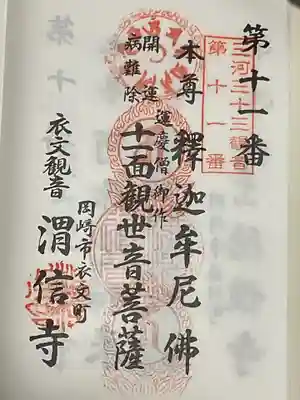 第十一番
三河三十三観音
第十一番
本尊 釋迦牟尼佛
開運
病難除
運慶僧御作
十一面観世音菩薩
岡崎市衣文町
衣文観音 渭信寺